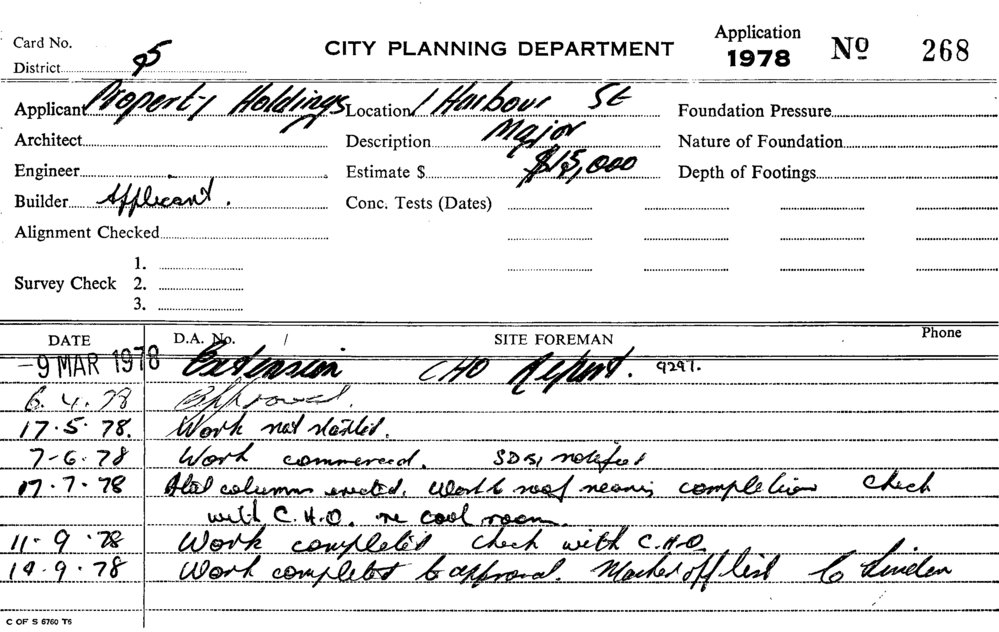 Card No.
CITY PLANNING DEPARTMENT
Application
1978 Nº 268
District
Applicant Property Holdings Location 1 Harbour St Foundation Pressure
Architect Description Major Nature of Foundation
Engineer Estimate $ $15,000 Depth of Footings
Builder Applicant. Conc. Tests (Dates)
Alignment Checked
1.
Survey Check 2.
3.
DATE D.A. No. / SITE FOREMAN Phone
-9 MAR 1978 Extension CHO Report. 9297.
6.4.78 Approved.
17.5.78. Work not started.
7-6.78 Work commenced. notified
17.7.78 columns erected. Work to roof nearing completion check
with C.H.O. re cool room.
11.9.78 Work completed check with C.H.O.
19.9.78 Work completed to approval. Marked off list
C OF S 6760 T6